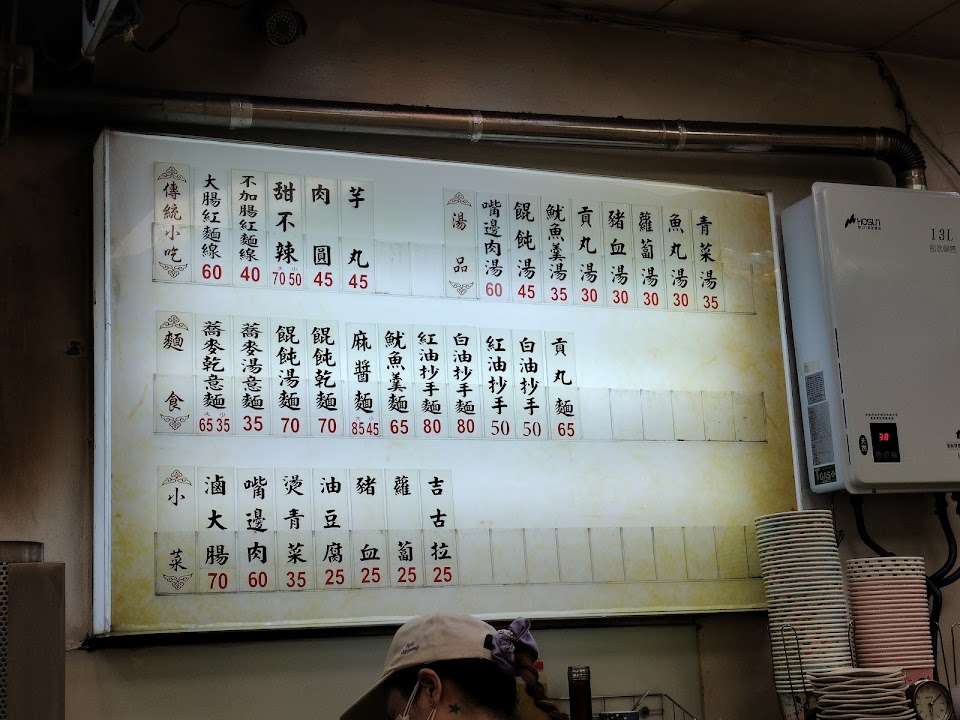 傳統小吃
大腸紅麵線 60
不加腸紅麵線 40
甜不辣 大70 小50
肉圓 45
芋丸 45
湯品
嘴邊肉湯 60
餛飩湯 45
魷魚羹湯 35
貢丸湯 30
豬血湯 30
蘿蔔湯 30
魚丸湯 30
青菜湯 35
麵食
蕎麥乾意麵 大65 小35
蕎麥湯意麵 35
餛飩湯麵 70
餛飩乾麵 70
麻醬麵 85 45
魷魚羹麵 65
紅油抄手麵 80
白油抄手麵 80
紅油抄手 50
白油抄手 50
貢丸麵 65
小菜
滷大腸 70
嘴邊肉 60
燙青菜 35
油豆腐 25
豬血 25
蘿蔔 25
吉古拉 25
HOSUN
13L
38